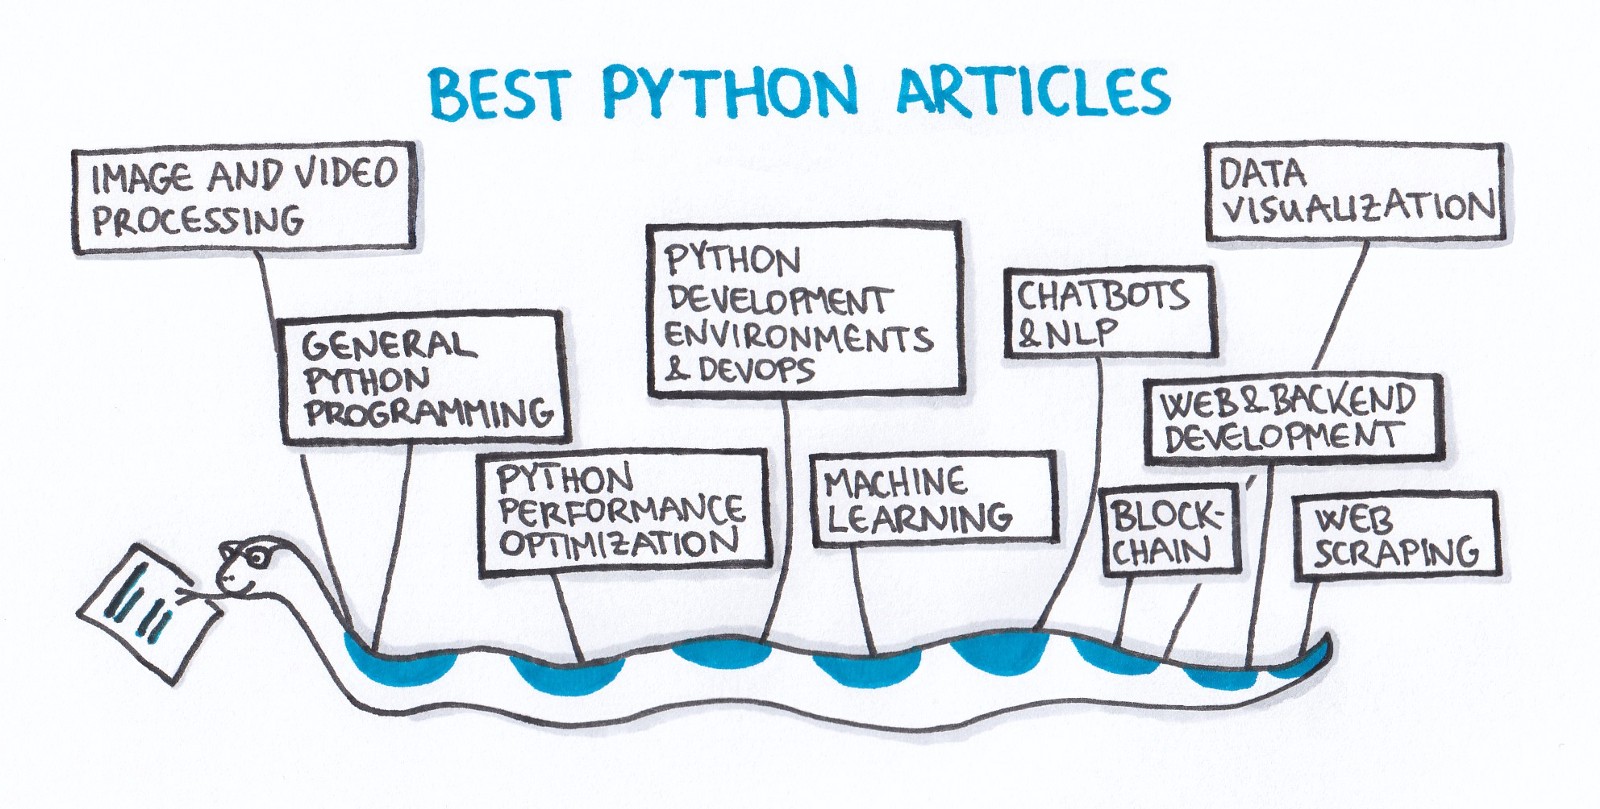 BEST PYTHON ARTICLES
IMAGE AND VIDEO
PROCESSING
GENERAL
PYTHON
PROGRAMMING
PYTHON
PERFORMANCE
OPTIMIZATION
PYTHON
DEVELOPMENT
ENVIRONMENTS
& DEVOPS
MACHINE
LEARNING
CHATBOTS
& NLP
BLOCK-
CHAIN
WEB & BACKEND
DEVELOPMENT
DATA
VISUALIZATION
WEB
SCRAPING